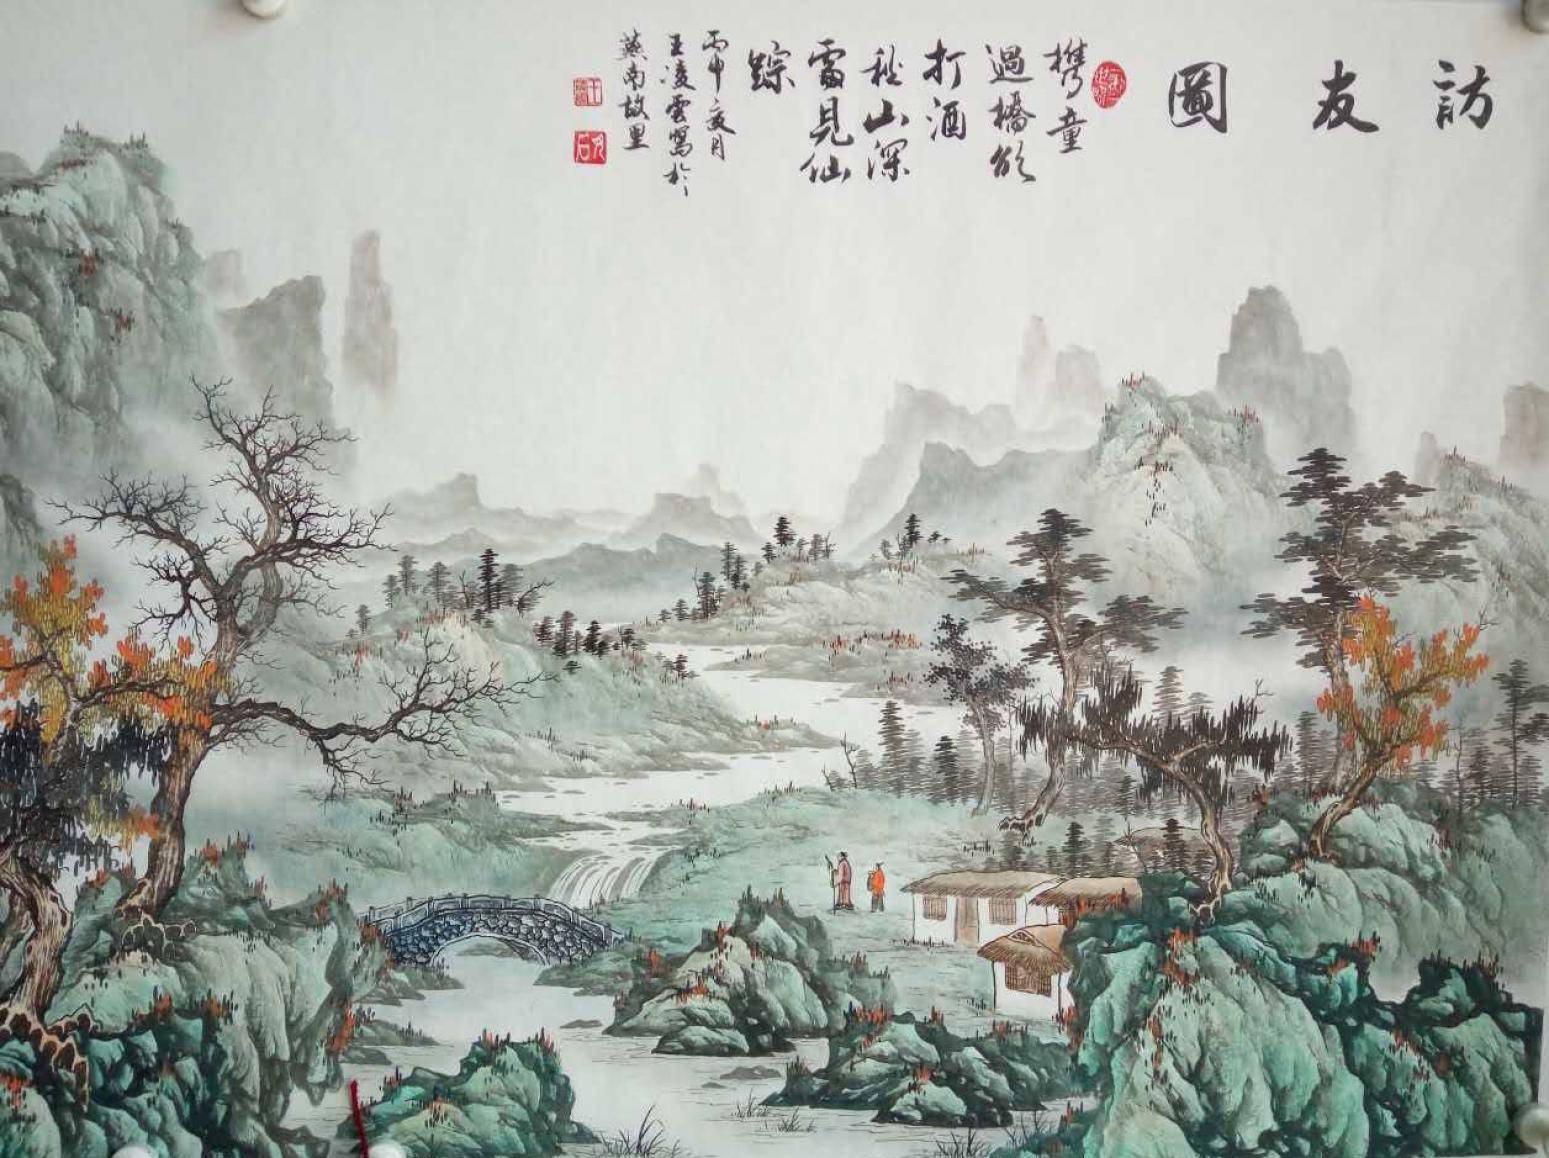 訪友圖
攜童
過橋欲
打酒
秋山深
處見仙
踪
丙申夏月
王凌雲寫於
燕南故里